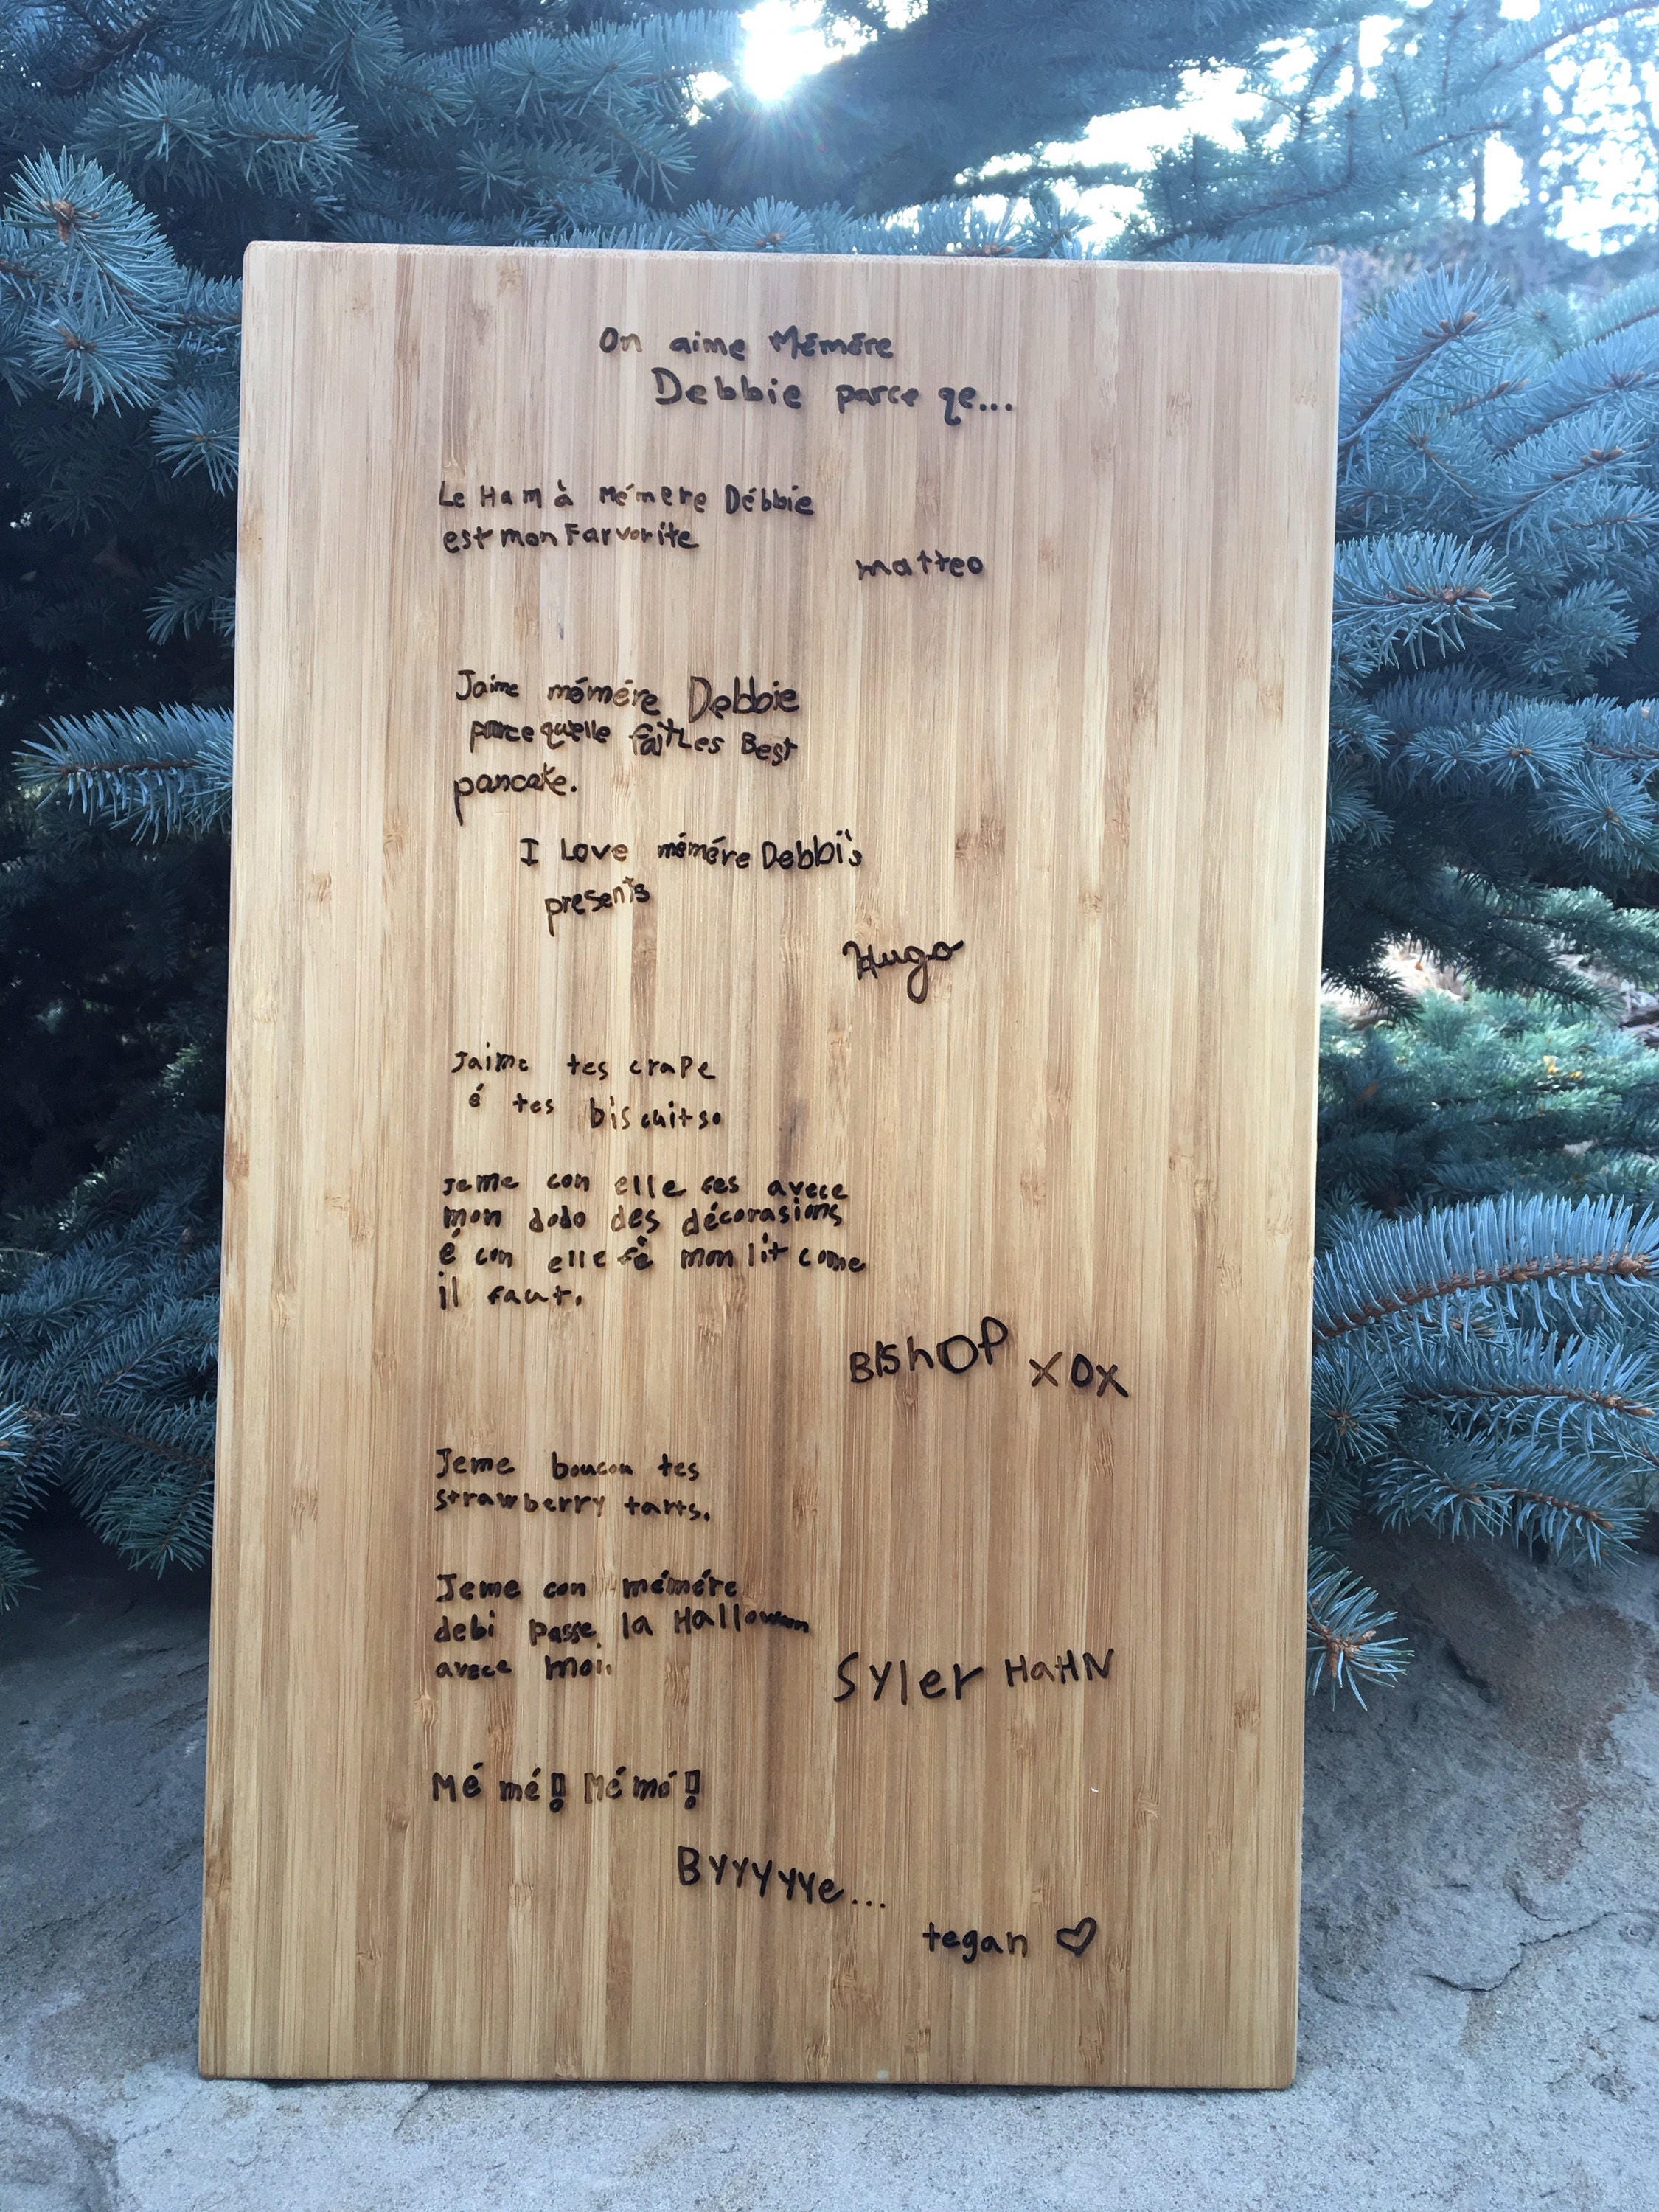 On aime Mémére
Debbie parce qe...
Le Ham à Mémere Débbie
est mon Farvorite
matteo
Jaime mémére Debbie
parce quelle fait Les Best
pancake.
I Love mémére Debbi's
presents
Hugo
Jaime tes crape
é tes biscuits.
jeme con elle fes avece
mon dodo des décorasions
é con elle fè mon lit come
il faut.
BIShOP XOX
Jeme boucou tes
strawberry tarts.
Jeme con mémére
debi passe la Halloween
avece moi.
Syler HaHN
Mé mé! Mé mé!
Byyyyye...
tegan ♡